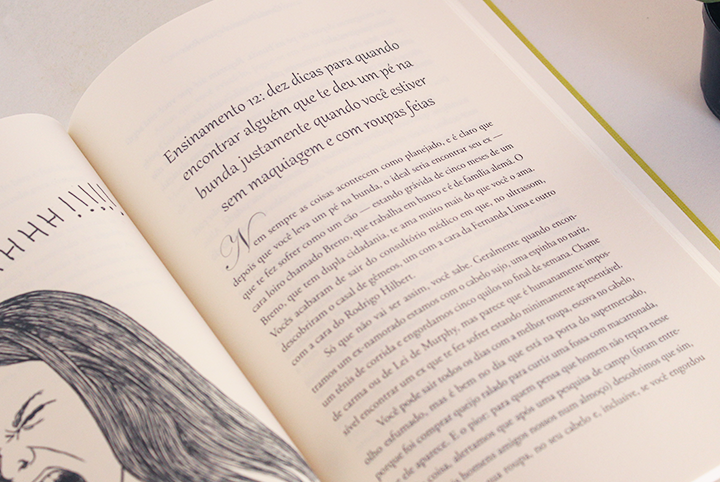 HHHH!!!!!!
Ensinamento 12: dez dicas para quando
encontrar alguém que te deu um pé na
bunda justamente quando você estiver
sem maquiagem e com roupas feias
Nem sempre as coisas acontecem como planejado, e é claro que
depois que você leva um pé na bunda, o ideal seria encontrar seu ex —
que te fez sofrer como um cão — estando grávida de cinco meses de um
cara loiro chamado Breno, que trabalha em banco e é de família alemã. O
Breno, que tem dupla cidadania, te ama muito mais do que você o ama.
Vocês acabaram de sair do consultório médico em que, no ultrassom,
descobriram o casal de gêmeos, um com a cara da Fernanda Lima e outro
com a cara do Rodrigo Hilbert.
Só que não vai ser assim, você sabe. Geralmente quando encon-
tramos um ex-namorado estamos com o cabelo sujo, uma espinha no nariz,
um tênis de corrida e engordamos cinco quilos no final de semana. Chame
de carma ou de Lei de Murphy, mas parece que é humanamente impos-
sível encontrar um ex que te fez sofrer estando minimamente apresentável.
Você pode sair todos os dias com a melhor roupa, escova no cabelo,
olho esfumado, mas é bem no dia que está na porta do supermercado,
porque foi comprar queijo ralado para curtir uma fossa com macarronada,
ele aparece. E o pior: para quem pensa que homem não repara nesse
coisa, alertamos que após uma pesquisa de campo (foram entre-
homens amigos nossos num almoço) descobrimos que sim,
sua roupa, no seu cabelo e, inclusive, se você engordou